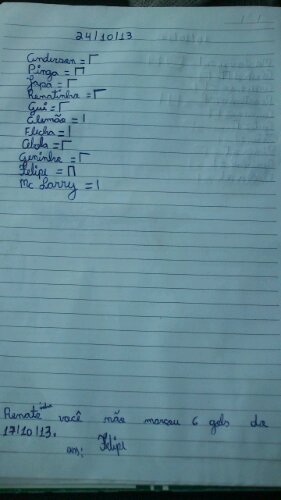 24/10/13
Anderson = Γ
Pinga = Π
Japa = Γ
Renatinho = Γ
Gui = Γ
Elemão = I
Ficha = I
Abola = Γ
Geninho = Γ
Felipe = Π
Mc Larry = I
Renatinho você não marcou 6 gols da
17/10/13.
ass: Felipe